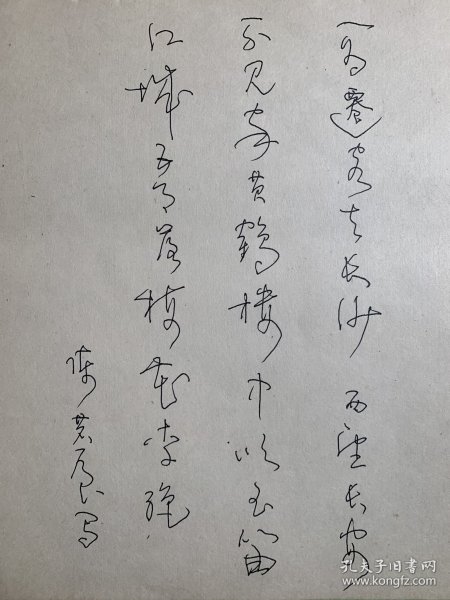 一为迁客去长沙 西望长安
不见家黄鹤楼中吹玉笛
江城五月落梅花 李
孔夫子旧书网
www.kongfz.com